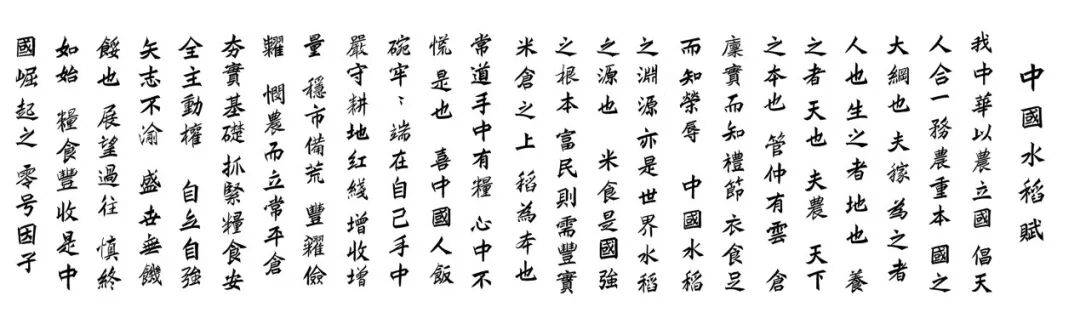 中國水稻賦
我中華以農立國 倡天
人合一務農重本 國之
大綱也 夫稼 為之者
人也生之者 地也 養
之者 天也 夫農 天下
之本也 管仲有雲 倉
廩實而知禮節衣食足
而知榮辱 中國水稻
之淵源亦是世界水稻
之源也 米食是國強
之根本 富民則需豐實
米倉之上 稻為本也
常道手中有糧 心中不
慌 是也 喜中國人飯
碗牢；端在自己手中
嚴守耕地紅綫增收增
量 穩市備荒 豐糶儉
糶 憫農而立常平倉
夯實基礎 抓緊糧食安
全主動權 自立自強
矢志不渝 盛世垂饑
餒也 展望過往 慎終
如始 糧食豐收是中
國崛起之 零号因子